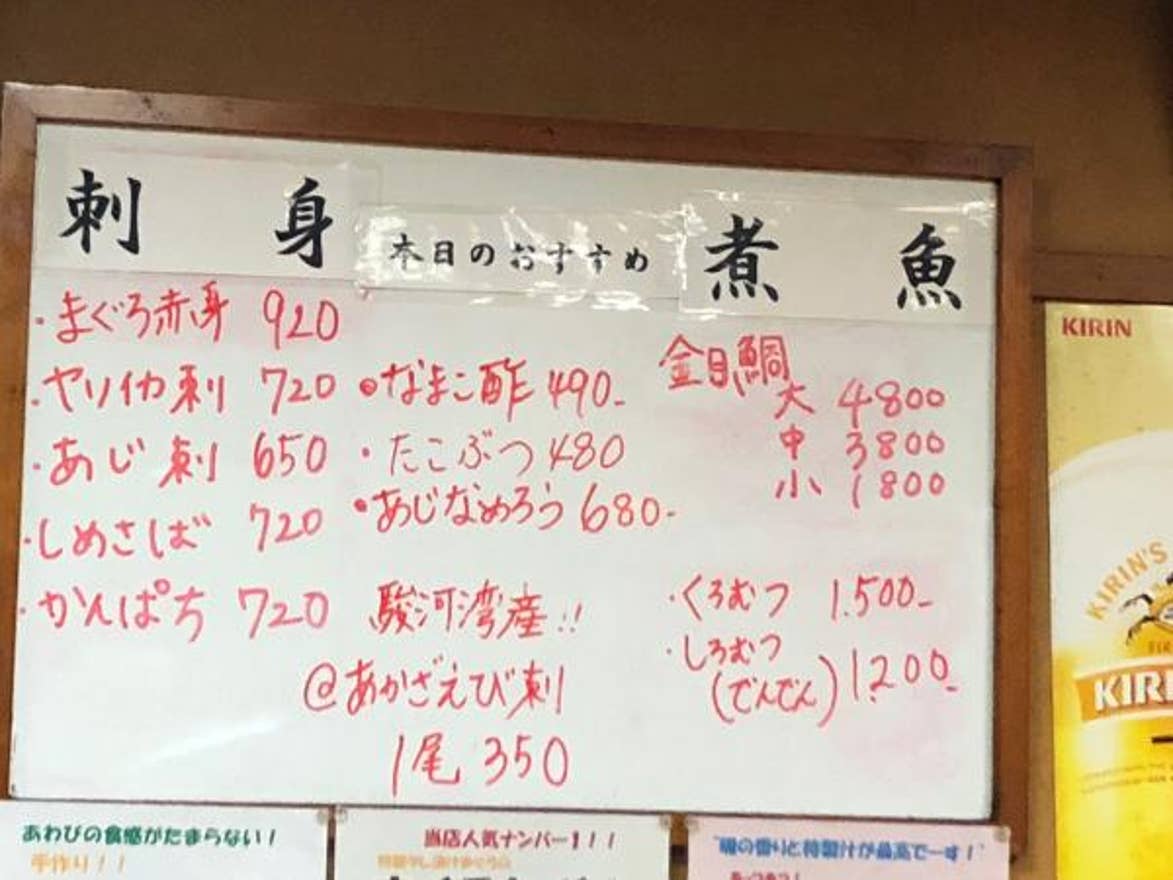 刺身
本日のおすすめ
煮魚
・まぐろ赤身 920
・ヤリイカ刺 720
・あじ刺 650
・しめさば 720
・かんぱち 720
・なまこ酢 490-
・たこぶつ 480
・あじなめろう 680-
駿河湾産!!
@あかざえび刺
1尾 350
金目鯛
大 4800
中 3800
小 1800
・くろむつ 1.500-
・しろむつ
(でんでん) 1.200-
KIRIN
KIRIN'S
あわびの食感がたまらない!
手作り!!
当店人気ナンバー1!!